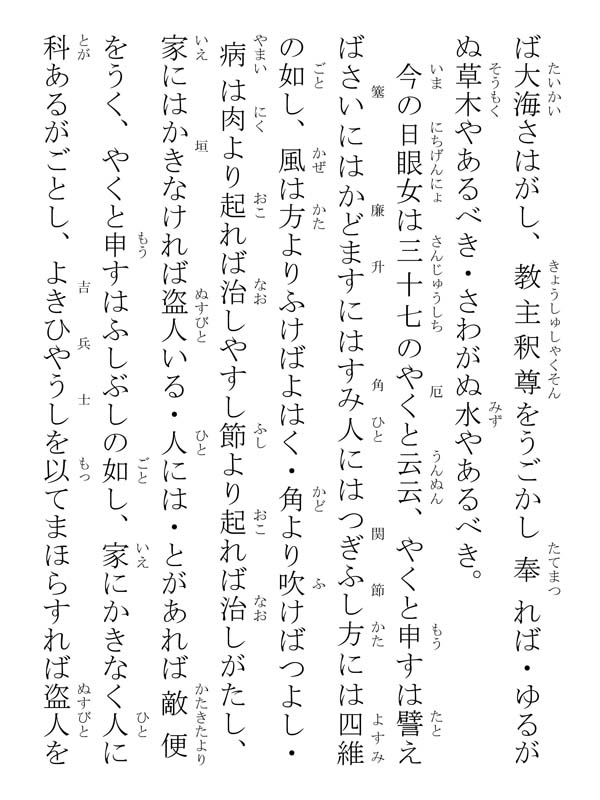 ば大海さはがし、教主釈尊をうごかし奉れば・ゆるが
ぬ草木やあるべき・さわがぬ水やあるべき。
今の日眼女は三十七のやくと云云、やくと申すは譬え
ばさいにはかどますにはすみ人にはつぎふし方には四維
の如し、風は方よりふけばよはく・角より吹けばつよし・
病は肉より起れば治しやすし節より起れば治しがたし、
家にはかきなければ盗人いる・人には・とがあれば敵便
をうく、やくと申すはふしぶしの如し、家にかきなく人に
科あるがごとし、よきひやうしを以てまほらすれば盗人を